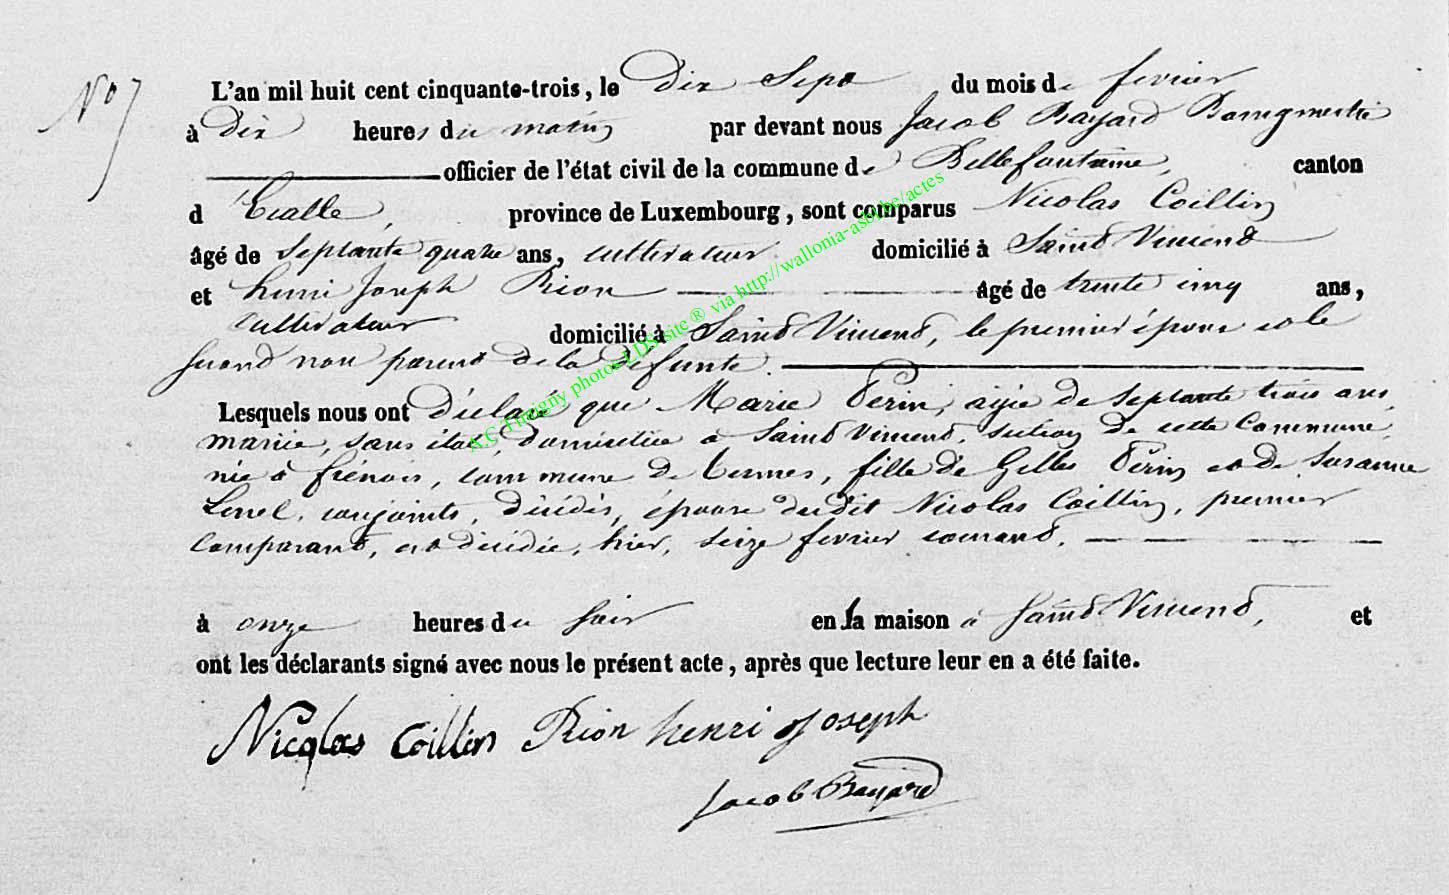 N° 7
L'an mil huit cent cinquante-trois, le dix Sept du mois de fevrier
à Dix heures du matin par devant nous Jacob Bayard Bourgmestre
officier de l'état civil de la commune de Bellefontaine, canton
d'Etalle, province de Luxembourg, sont comparus Nicolas Coillin
âgé de septante quatre ans, cultivateur domicilié à Saint Vincent
et henri Joseph Rion âgé de trente cinq ans,
cultivateur domicilié à Saint Vincent, le premier époux et le
second non parent de la défunte.
Lesquels nous ont Déclaré que Marie Perin, agée de septante trois ans,
mariée, sans état, domiciliée à Saint Vincent, section de cette Commune,
née à frenois, commune de termes, fille de Gilles Périn et de Susanne
conjoints, décédés, épouse dudit Nicolas Coillin, premier
Comparant, est décédée, hier, seize fevrier courant,
à onze heures du soir en sa maison à Saint Vincent, et
ont les déclarants signé avec nous le présent acte, après que lecture leur en a été faite.
Nicolas Coillin Rion henri Joseph
Jacob Bayard
A.C Tintigny photos LDS site ® via http://wallonia-asbl.be/actes